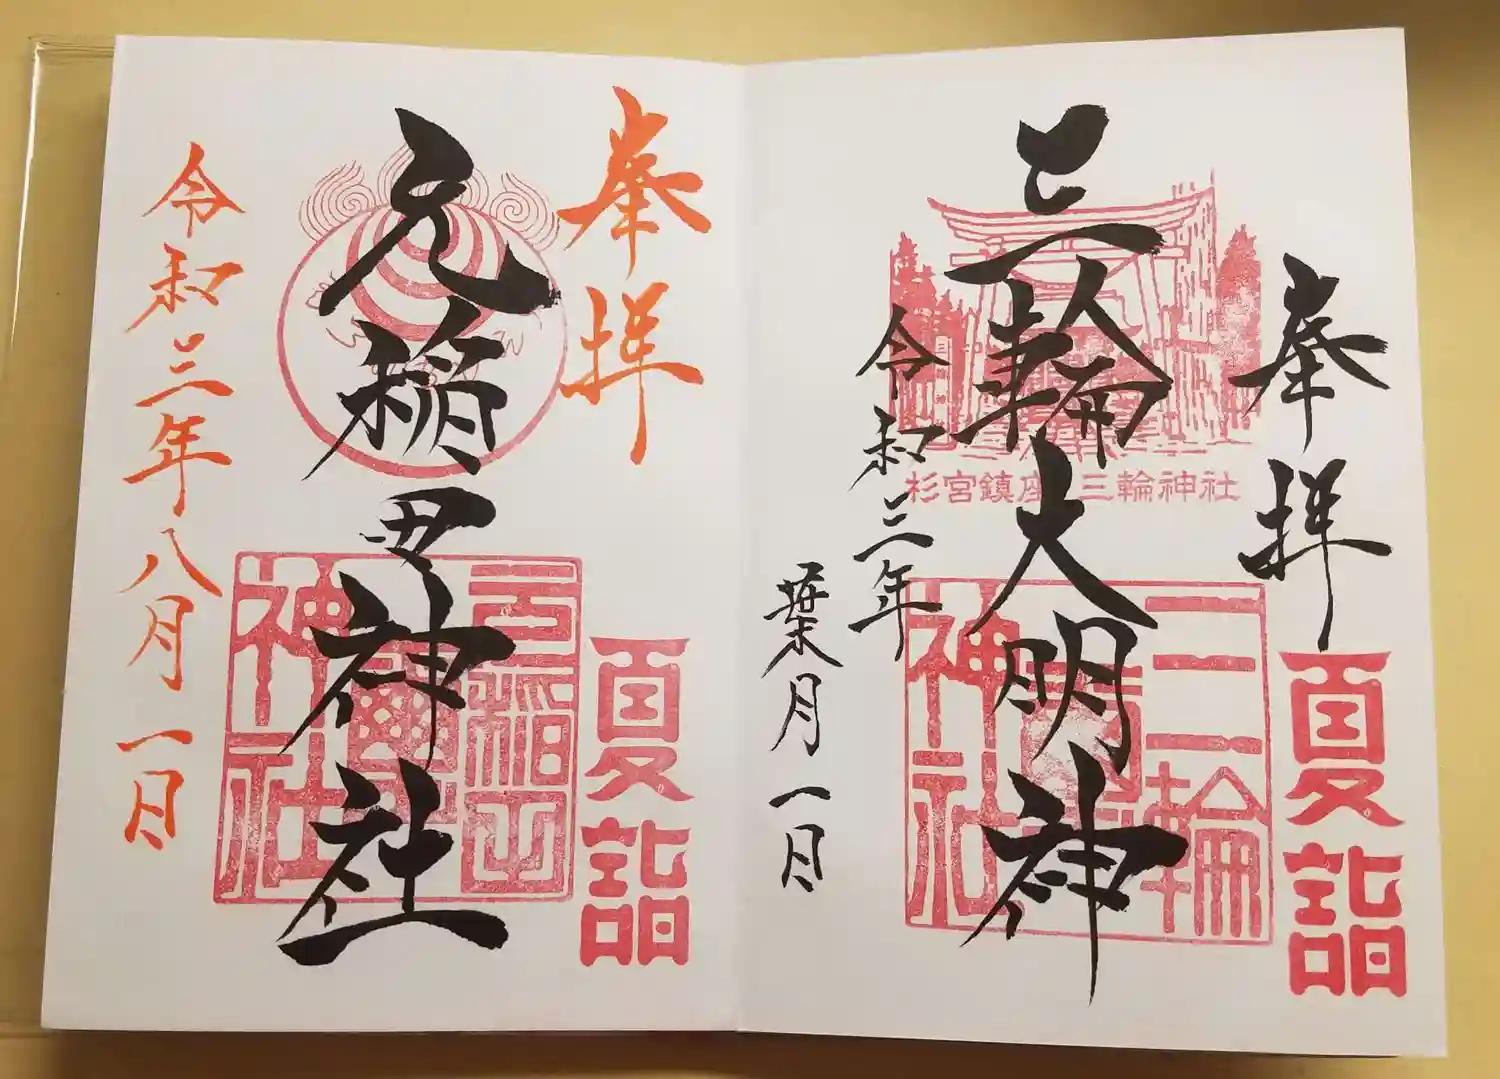 奉拝
夏詣
三輪大明神
杉宮鎮座 三輪神社
三輪
神社
令和三年
葉月一日
奉拝
夏詣
元稲田神社
元稲田
神社
令和三年八月一日